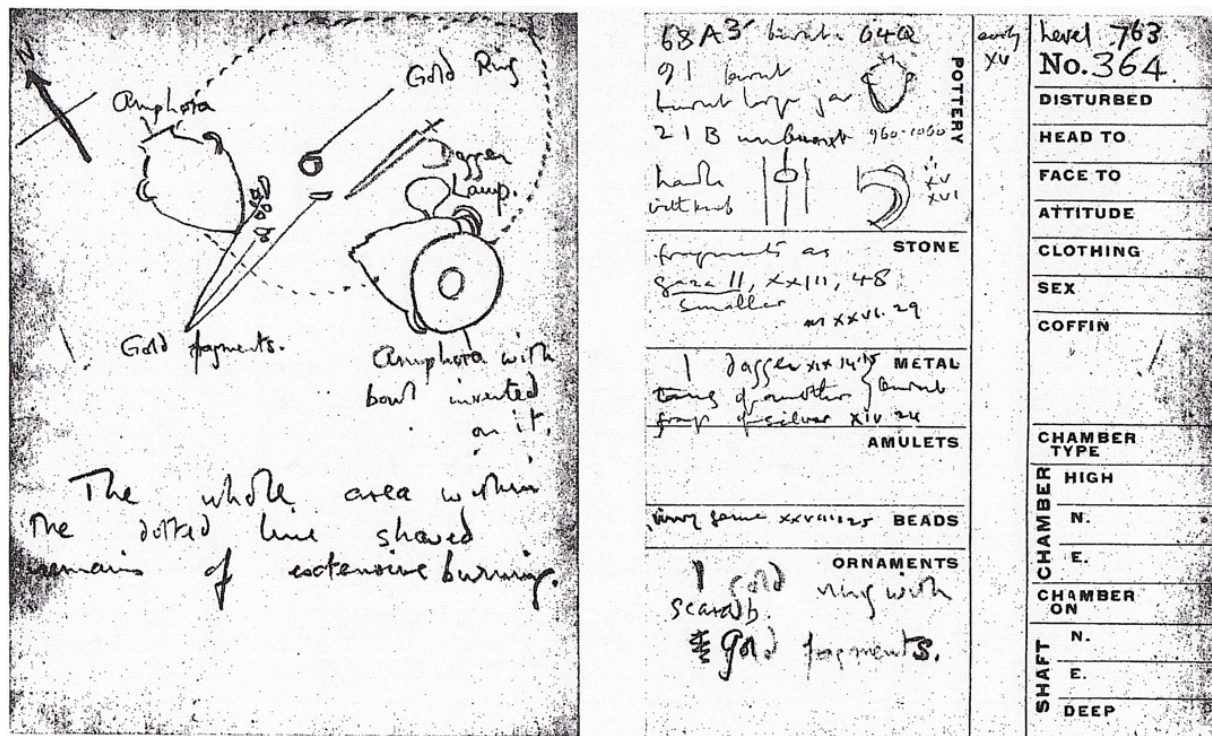 N
Gold Ring
Amphora
Dagger
Lamp.
Gold fragments.
Amphora with
bowl inverted
on it.
The whole area within
the dotted line showed
remains of extensive burning.
68 A3 burnt 64Q
91 burnt
burnt large jar
21 B unburnt 960-1060
handle
with knob
XV
XVI
POTTERY
early
XV
STONE
fragments as
gaza II, XXIII, 48
smaller
XXVI. 29
METAL
1 dagger XIX 14.15
tang of another } burnt
frag of silver XIV 24
AMULETS
BEADS
ORNAMENTS
1 gold ring with
scarab.
gold fragments.
Level 763
No. 364.
DISTURBED
HEAD TO
FACE TO
ATTITUDE
CLOTHING
SEX
COFFIN
CHAMBER
TYPE
CHAMBER
HIGH
N.
E.
CHAMBER
ON
SHAFT
N.
E.
DEEP